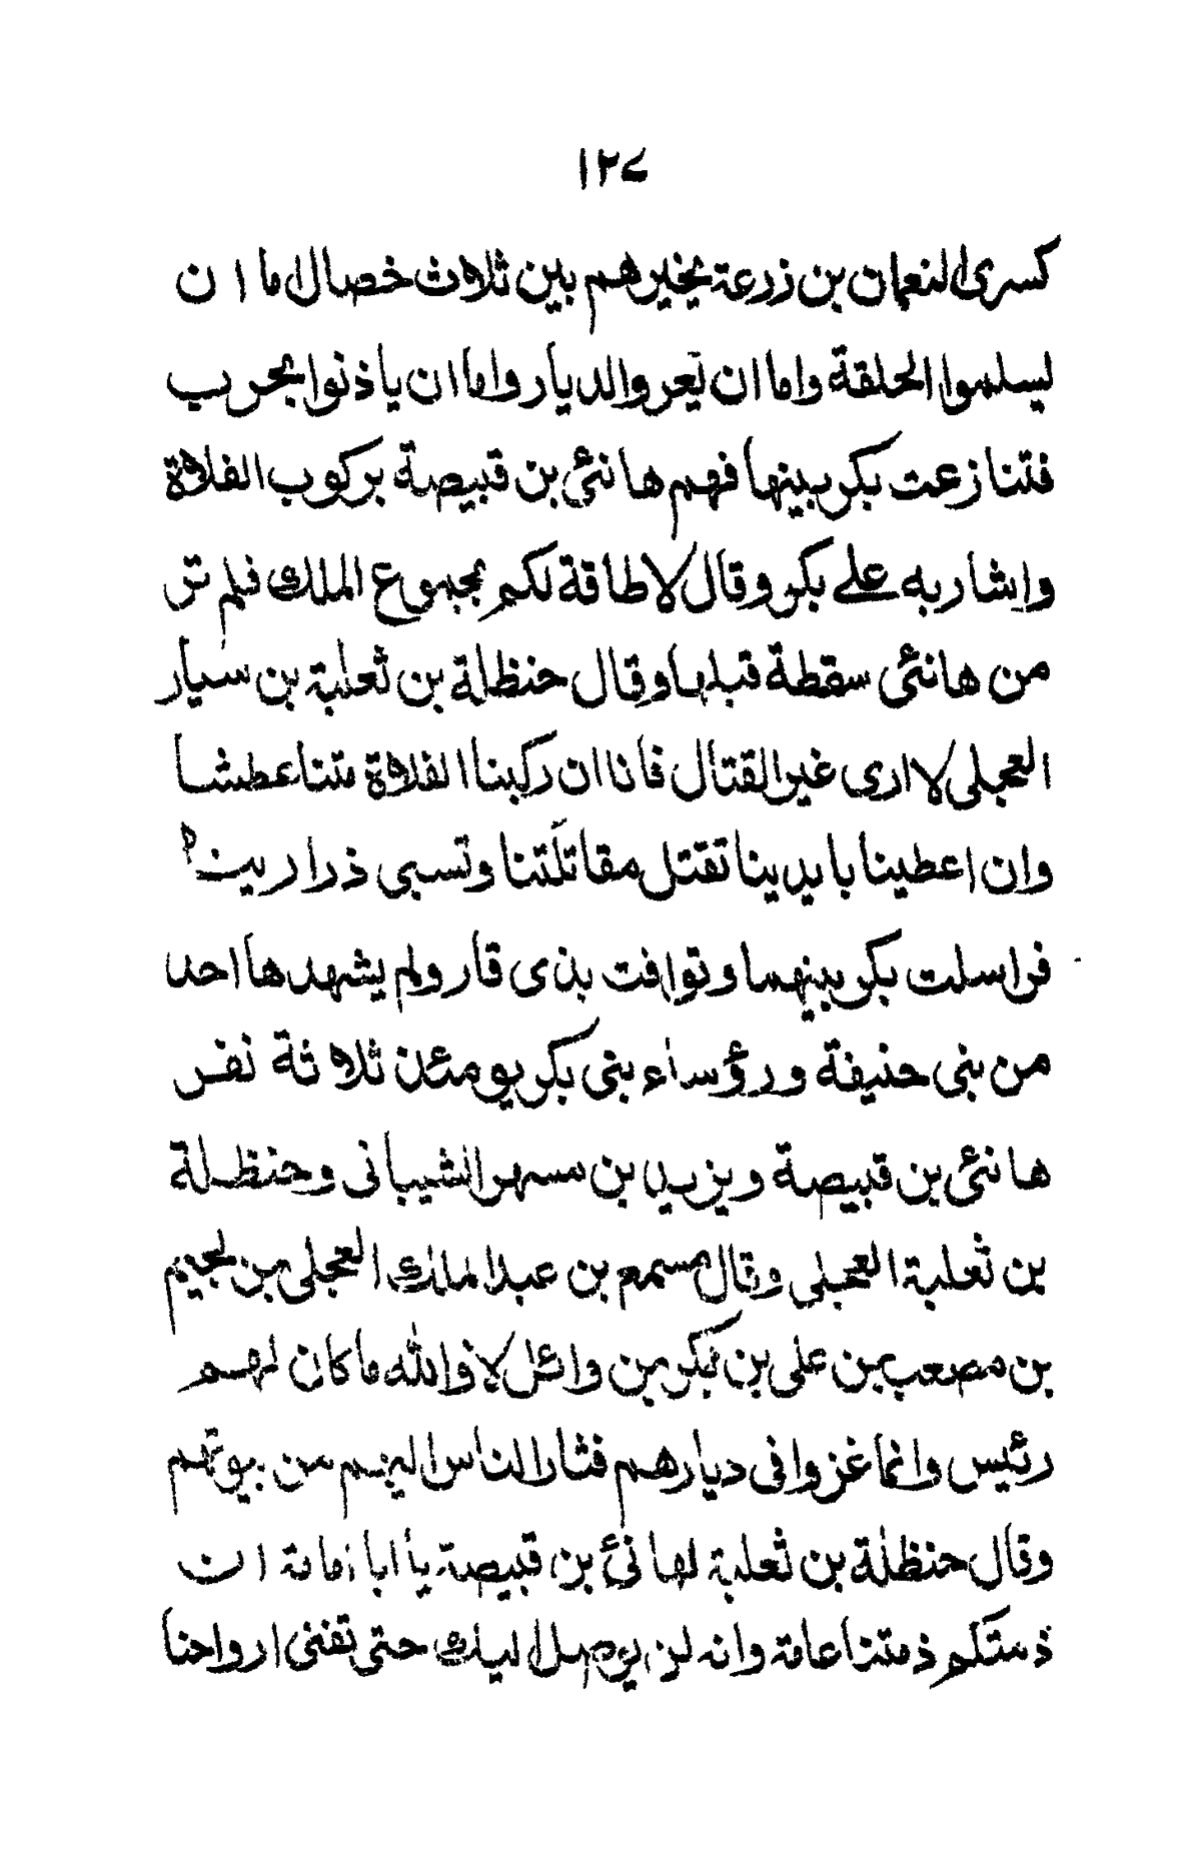 ١٢٧
كسرى النعمان بن زرعة يخيرهم بين ثلاث خصال اما ان
يسلموا الحلقة واما ان يعروا الديار واما ان ياذنوا بحرب
فتنازعت بكر بينها فهم هانئى بن قبيصة بركوب الفلاة
واشار به على بكر وقال لا طاقة لكم بجموع الملك فلم تر
من هانئى سقطة قبلها وقال حنظلة بن ثعلبة بن سيار
العجلى لا ارى غير القتال فانا ان ركبنا الفلاة متنا عطشا
وان اعطينا بايدينا تقتل مقاتلتنا وتسبى ذرارينا
فراسلت بكر بينهما وتوافت بذى قار ولم يشهدها احد
من بنى حنيفة ورؤساء بنى بكر يومئذ ثلاثة نفر
هانئى بن قبيصة ويزيد بن مسهر الشيبانى وحنظلة
بن ثعلبة العجلى وقال مسمع بن عبد الملك العجلى من لجيم
بن مصعب بن على بن بكر بن وائل لا والله ما كان لهم
رئيس وانما غزوا فى ديارهم فثار الناس اليهم من بيوتهم
وقال حنظلة بن ثعلبة لهانئ بن قبيصة يا ابا امامة ان
ذمتكم ذمتنا عامة وانه لن يوصل اليك حتى تفنى ارواحنا